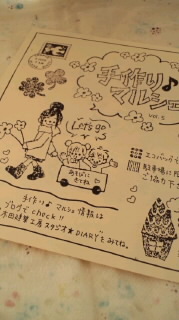 手作り♪
マルシェ
VOL.5
Let's go
あそびに
きてね
エコバッグ
駐車場に
ご協力下
手作り♪ マルシェ 情報は
ブログで check!!
木田建業工房スタジオ★DIARY"をみてね。